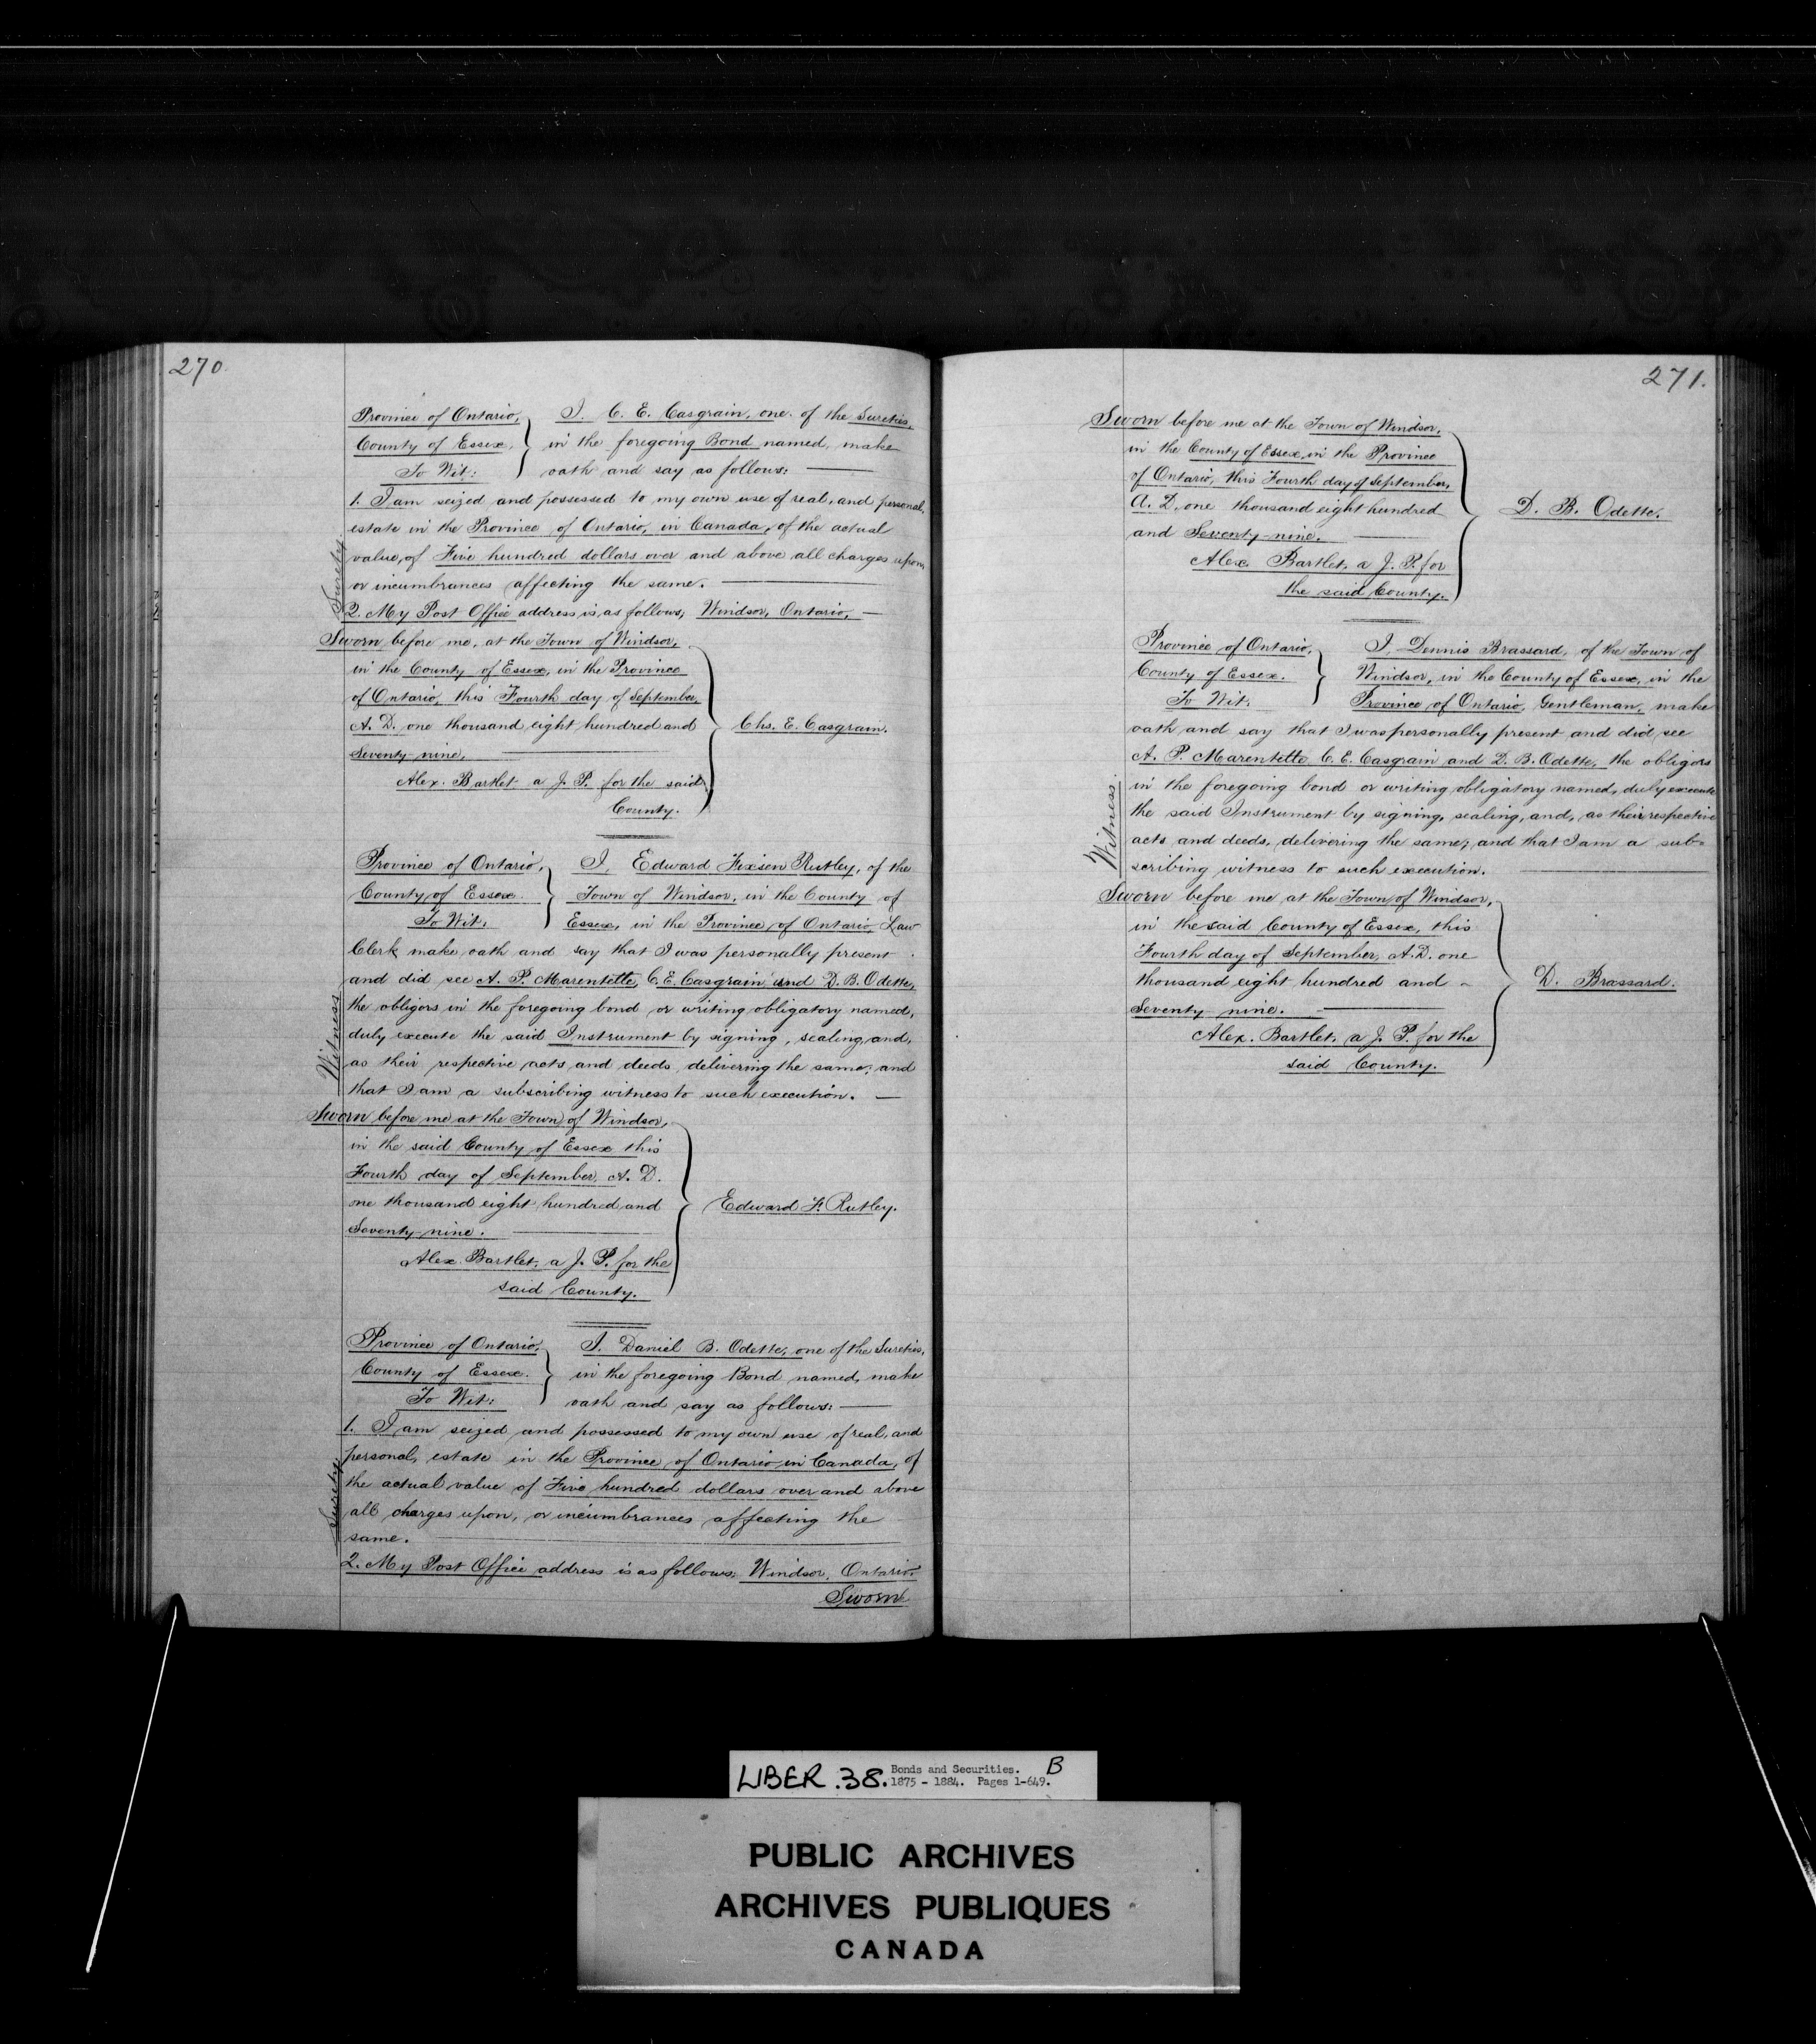 270.
Province of Ontario, I. C. E. Casgrain, one of the Sureties,
County of Essex, in the foregoing Bond named, make
To Wit: oath and say as follows:
1. I am seized and possessed to my own use of real, and personal,
estate in the Province of Ontario, in Canada, of the actual
value, of Five hundred dollars over and above all charges upon,
or incumbrances affecting the same.
Surety.
2. My Post Office address is as follows; Windsor, Ontario,
Sworn before me, at the Town of Windsor,
in the County of Essex, in the Province
of Ontario, this Fourth day of September,
A. D. one thousand eight hundred and
Seventy-nine,
Chs. E. Casgrain.
Alex. Bartlet a J. P. for the said
County.
Province of Ontario, I, Edward Fixsen Rutley, of the
County of Essex. Town of Windsor, in the County of
To Wit: Essex, in the Province of Ontario, Law
Clerk make oath and say that I was personally present
and did see A. P. Marentette, C. E. Casgrain, and D. B. Odette,
the obligors in the foregoing bond or writing obligatory named,
duly execute the said Instrument by signing, sealing, and,
as their respective acts and deeds, delivering the same; and
that I am a subscribing witness to such execution.
Witness
Sworn before me at the Town of Windsor,
in the said County of Essex this
Fourth day of September, A. D.
one thousand eight hundred and
Seventy-nine.
Edward F. Rutley.
Alex. Bartlet, a J. P. for the
said County.
Province of Ontario, I. Daniel B. Odette, one of the Sureties,
County of Essex. in the foregoing Bond named, make
To Wit: oath and say as follows:
1. I am seized and possessed to my own use of real, and
personal, estate in the Province of Ontario, in Canada, of
the actual value of Five hundred dollars over and above
all charges upon, or incumbrances affecting the
same.
Surety
2. My Post Office address is as follows; Windsor, Ontario.
Sworn
271.
Sworn before me at the Town of Windsor,
in the County of Essex, in the Province
of Ontario, this Fourth day of September,
A. D. one thousand eight hundred
and Seventy-nine.
D. B. Odette.
Alex. Bartlet, a J. P. for
the said County.
Province of Ontario, I, Dennis Brassard, of the Town of
County of Essex. Windsor, in the County of Essex, in the
To Wit: Province of Ontario, Gentleman, make
oath and say that I was personally present and did see
A. P. Marentette, C. E. Casgrain and D. B. Odette, the obligors
in the foregoing bond or writing obligatory named, duly execute
the said Instrument by signing, sealing, and, as their respective
acts and deeds, delivering the same; and that I am a sub-
scribing witness to such execution.
Witness
Sworn before me at the Town of Windsor,
in the said County of Essex, this
Fourth day of September, A. D. one
thousand eight hundred and
Seventy nine.
D. Brassard.
Alex. Bartlet, a J. P. for the
said County.
LIBER. 38. Bonds and Securities. B
1875 - 1884. Pages 1-649.
PUBLIC ARCHIVES
ARCHIVES PUBLIQUES
CANADA